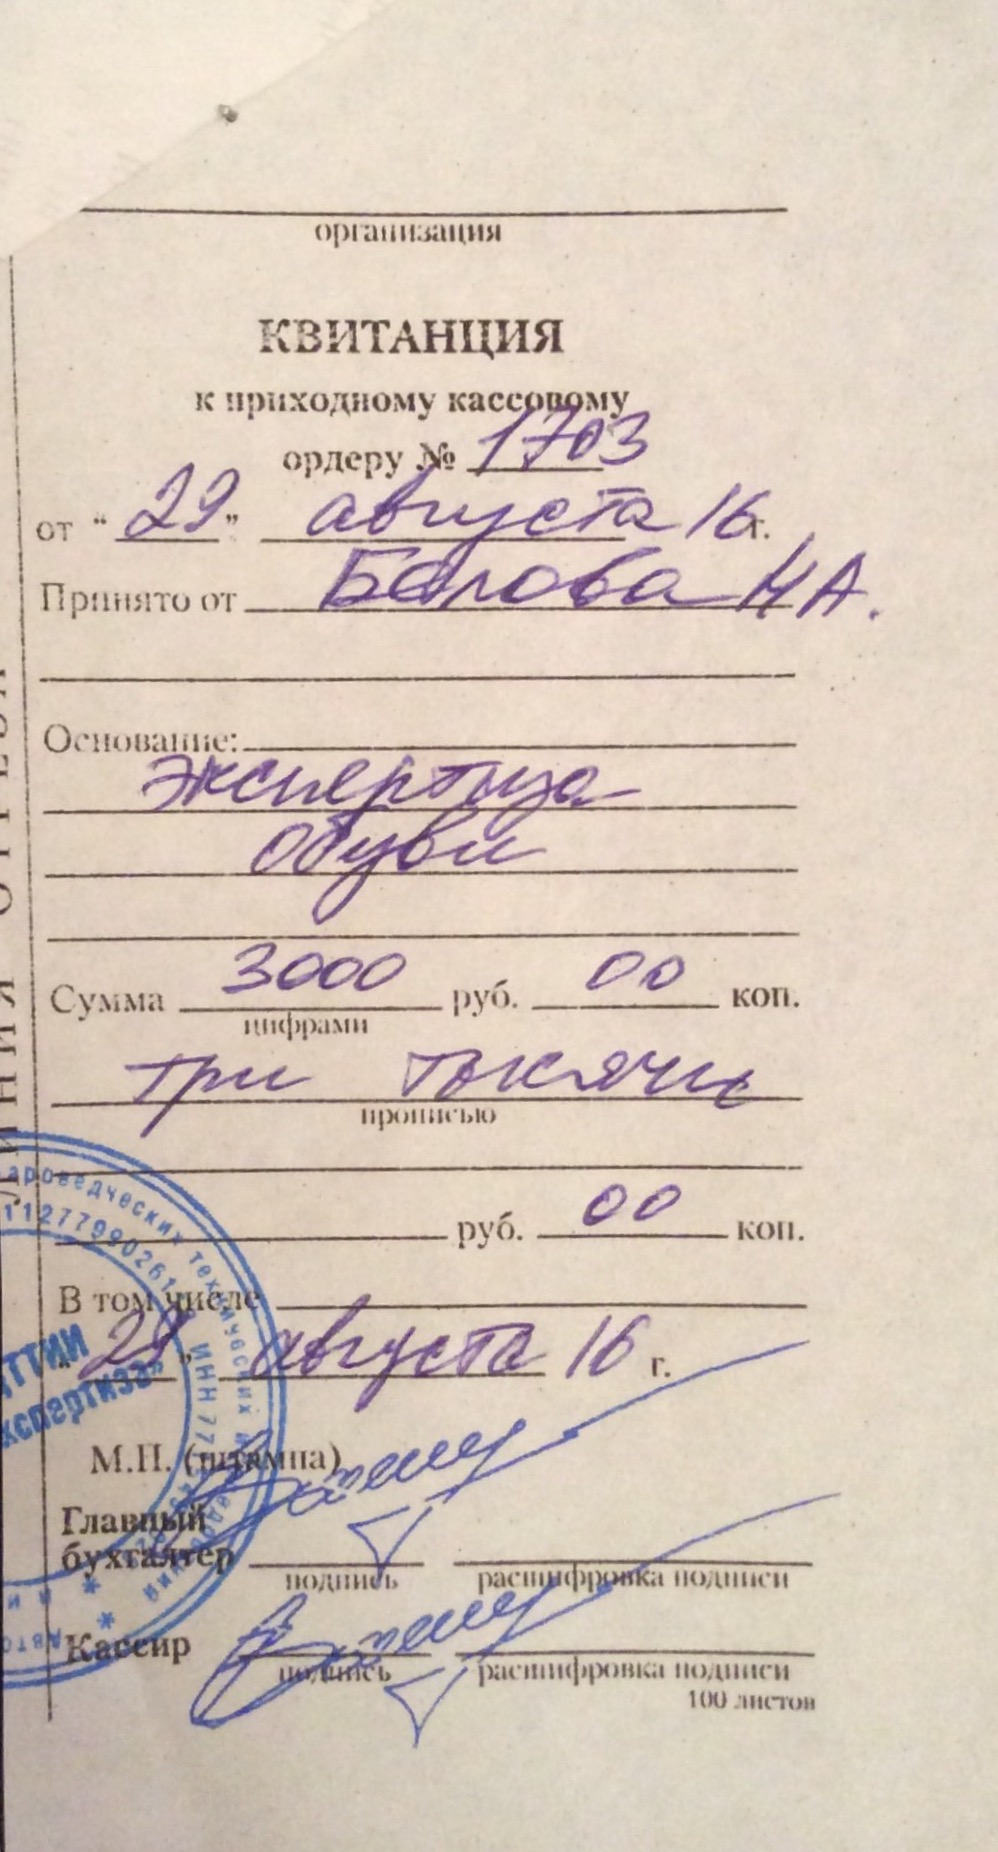 организация
КВИТАНЦИЯ
к приходному кассовому
ордеру № 1703
от "29" августа 16 г.
Принято от Белова Н А.
Основание:
экспертиза
обуви
Сумма 3000 руб. 00 коп.
цифрами
три тысячи
прописью
руб. 00 коп.
В том числе
"29" августа 16 г.
М.П. (штампа)
Главный
бухгалтер
подпись расшифровка подписи
Кассир
подпись расшифровка подписи
100 листов
ЛИНИЯ ОТРЕЗА
ароведческих технических и
11277990261
ИНН 77
кспертиза"